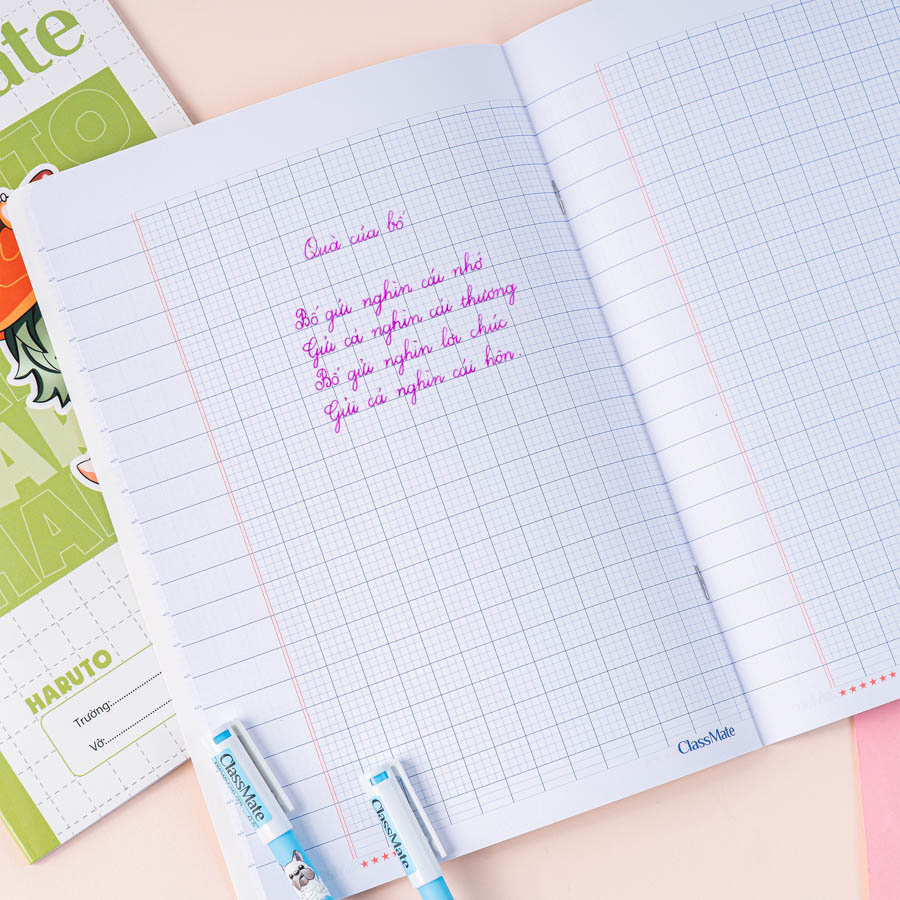 ate
TO
HARUTO
Trường:
Vở:
Quà của bố
Bố gửi nghìn cái nhớ
Gửi cả nghìn cái thương
Bố gửi nghìn lời chúc
Gửi cả nghìn cái hôn.
ClassMate
ClassMate
ClassMate